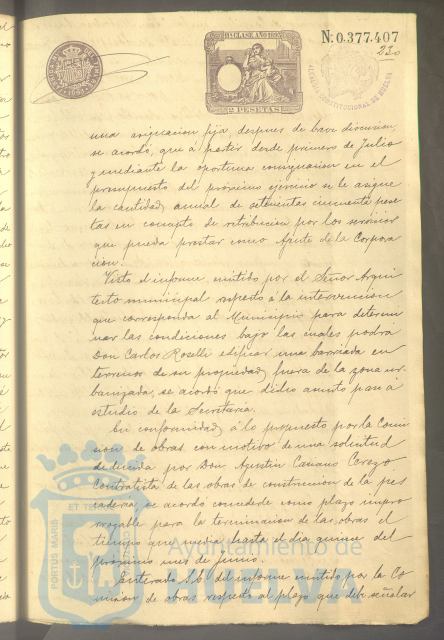 11ª CLASE. AÑO 1893
Nº 0.377.407
230
2 PESETAS
ALCALDIA CONSTITUCIONAL DE HUELVA
una asignacion fija, despues de breve discusion,
se acordó, que á partir desde primero de Julio
y mediante la oportuna consignacion en el
presupuesto del próximo ejercicio se le asigne
la cantidad anual de setecientas cincuenta pese
tas en concepto de retribucion por los servicios
que pueda prestar como Agente de la Corpora
cion.
Visto el informe emitido por el Señor Arqui
tecto municipal respecto á la intervencion
que corresponda al Municipio para determi
nar las condiciones bajo las cuales podrá
Don Carlos Roselli edificar una barriada en
terrenos de su propiedad, fuera de la zona ur-
banizada, se acordó que dicho asunto pase á
estudio de la Secretaria.
En conformidad á lo propuesto por la Comi
sion de obras con motivo de una solicitud
deducida por Don Agustin Cerezo
Contratista de las obras de construccion de la pes
caderia, se acordó concederle como plazo impro
rrogable para la terminacion de las obras el
tiempo que media hasta el dia quince del
proximo mes de Junio.
Enterado S.E. del informe emitido por la Co
mision de obras respecto al plazo que debe señalar
PORTUS MARIS ET TERRAE
Ayuntamiento de
HUELVA